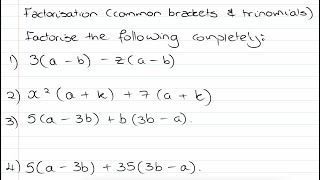 Factorisation (common brackets & trinomials)
Factorise the following completely:
1) 3(a - b) - z(a - b)
2) x²(a + k) + 7(a + k)
3) 5(a - 3b) + b(3b - a).
4) 5(a - 3b) + 35(3b - a).